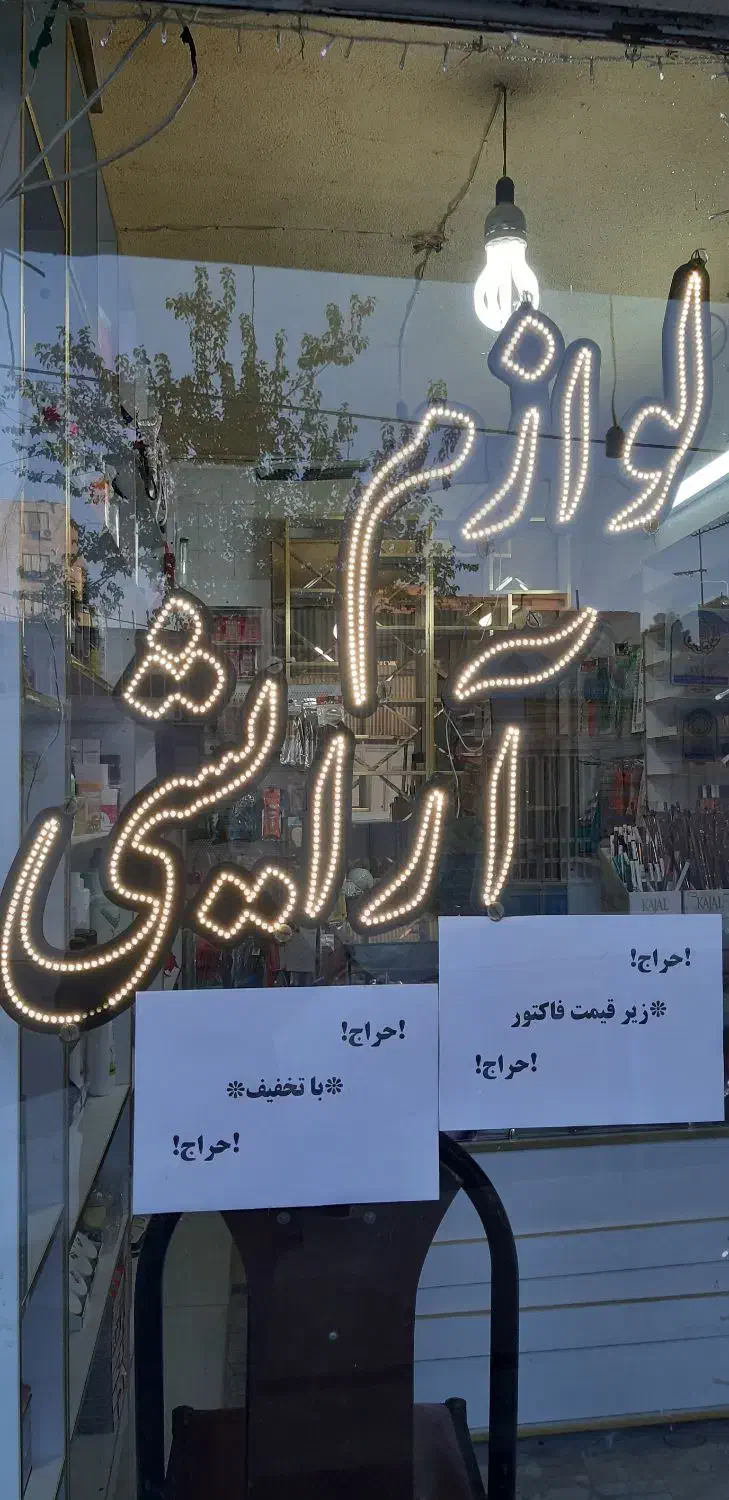 لوازم
آرایشی
!حراج!
*زیر قیمت فاکتور
!حراج!
!حراج!
*با تخفیف*
!حراج!
KAJAL
KAJAL